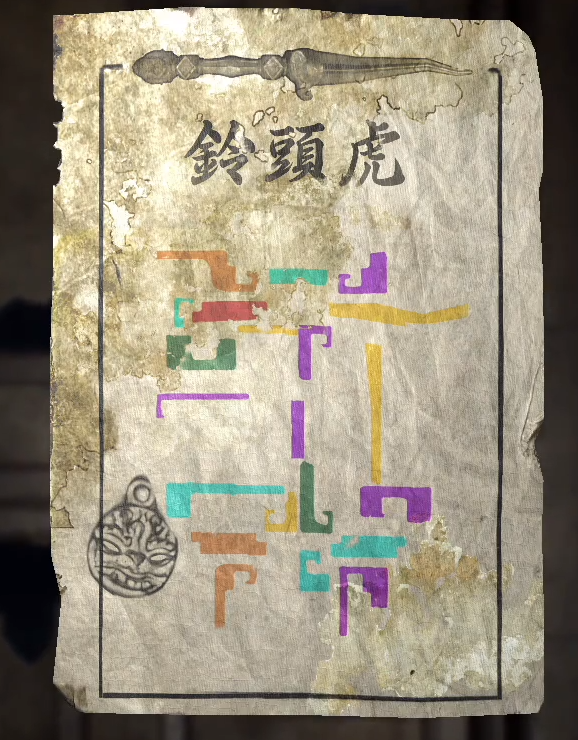 鈴頭虎